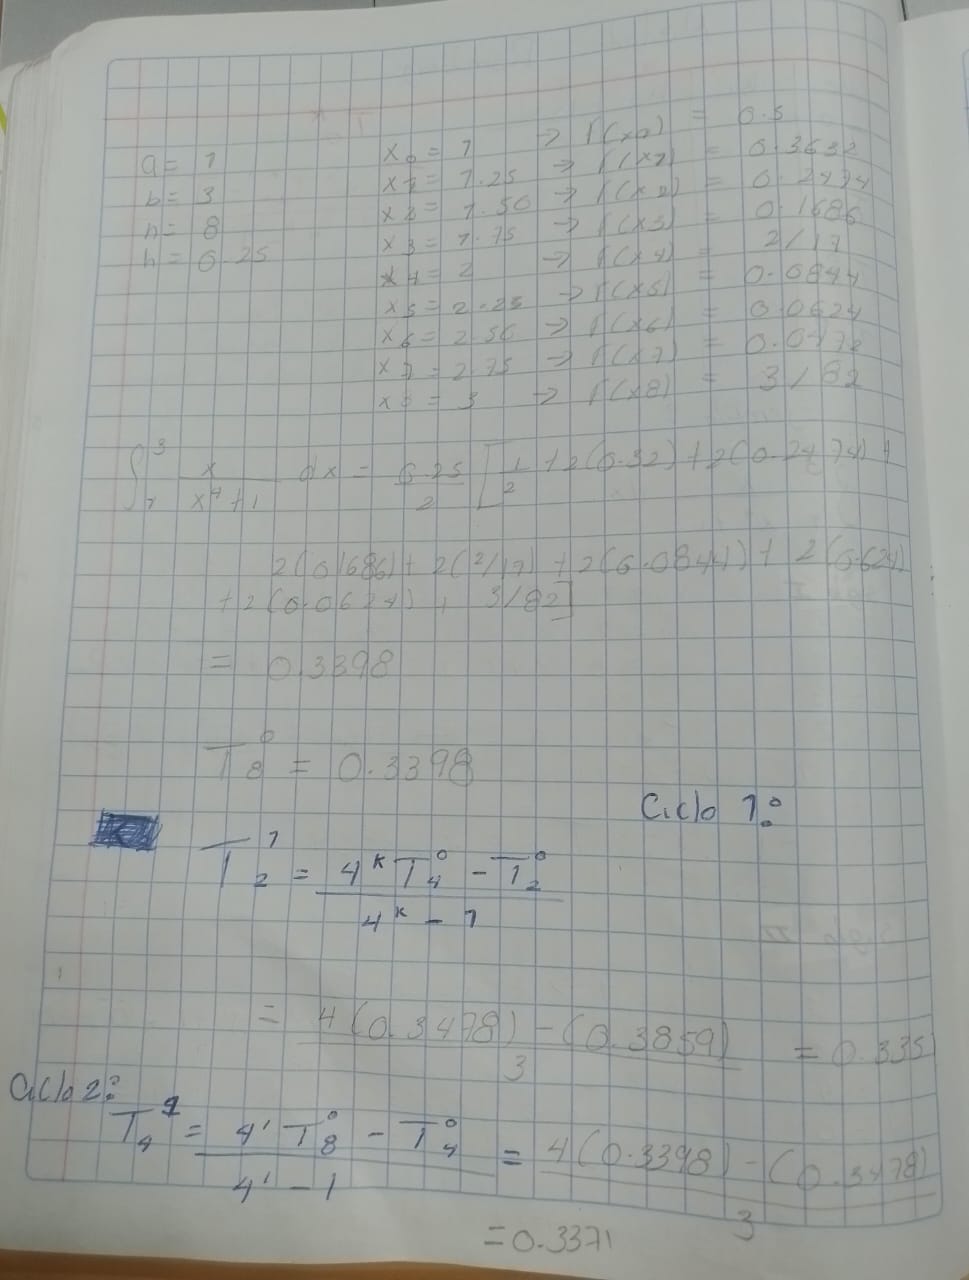 a = 1
b = 3
n = 8
h = 0.25
x0 = 1 → f(x0) = 0.5
x1 = 1.25 → f(x1) = 0.3632
x2 = 1.50 → f(x2) = 0.2474
x3 = 1.75 → f(x3) = 0.1686
x4 = 2 → f(x4) = 2/17
x5 = 2.25 → f(x5) = 0.0844
x6 = 2.50 → f(x6) = 0.0624
x7 = 2.75 → f(x7) = 0.0472
x8 = 3 → f(x8) = 3/82
∫₁³ x/(x⁴+1) dx = 0.25/2 [1/2 + 2(0.32) + 2(0.2474) +
2(0.1686) + 2(2/17) + 2(0.0844) + 2(0.624)
+ 2(0.0624) + 3/82]
= 0.3398
T₈⁰ = 0.3398
Ciclo 1:
T₂¹ = (4ᵏ T₄⁰ - T₂⁰)/(4ᵏ - 1)
= (4(0.3478) - (0.3859))/3 = 0.335
Ciclo 2:
T₄¹ = (4¹ T₈⁰ - T₄⁰)/(4¹ - 1) = (4(0.3398) - (0.3478))/3
= 0.3371